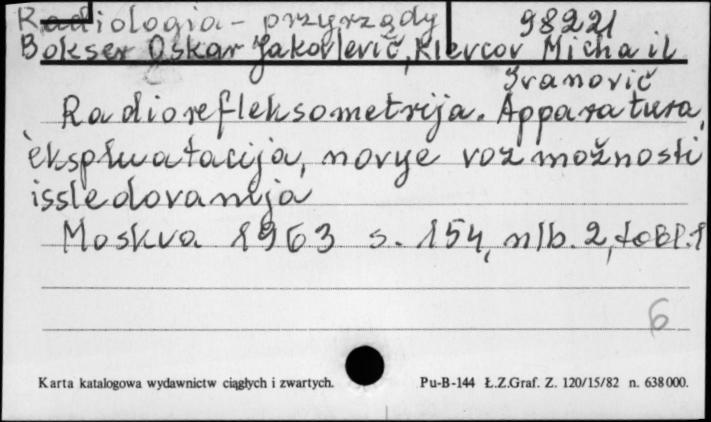 Radiologia - przyrządy 98221
Bokser Oskar Jakovlevič, Klevcov Michail
Ivanovič
Radiorefleksometrija. Apparatura,
ėkspłuatacija, novye vozmožnosti
issledovanija
Moskva 1963 s. 154, nlb. 2, tabl. 1
6
Karta katalogowa wydawnictw ciągłych i zwartych. Pu-B-144 Ł.Z.Graf. Z. 120/15/82 n. 638000.